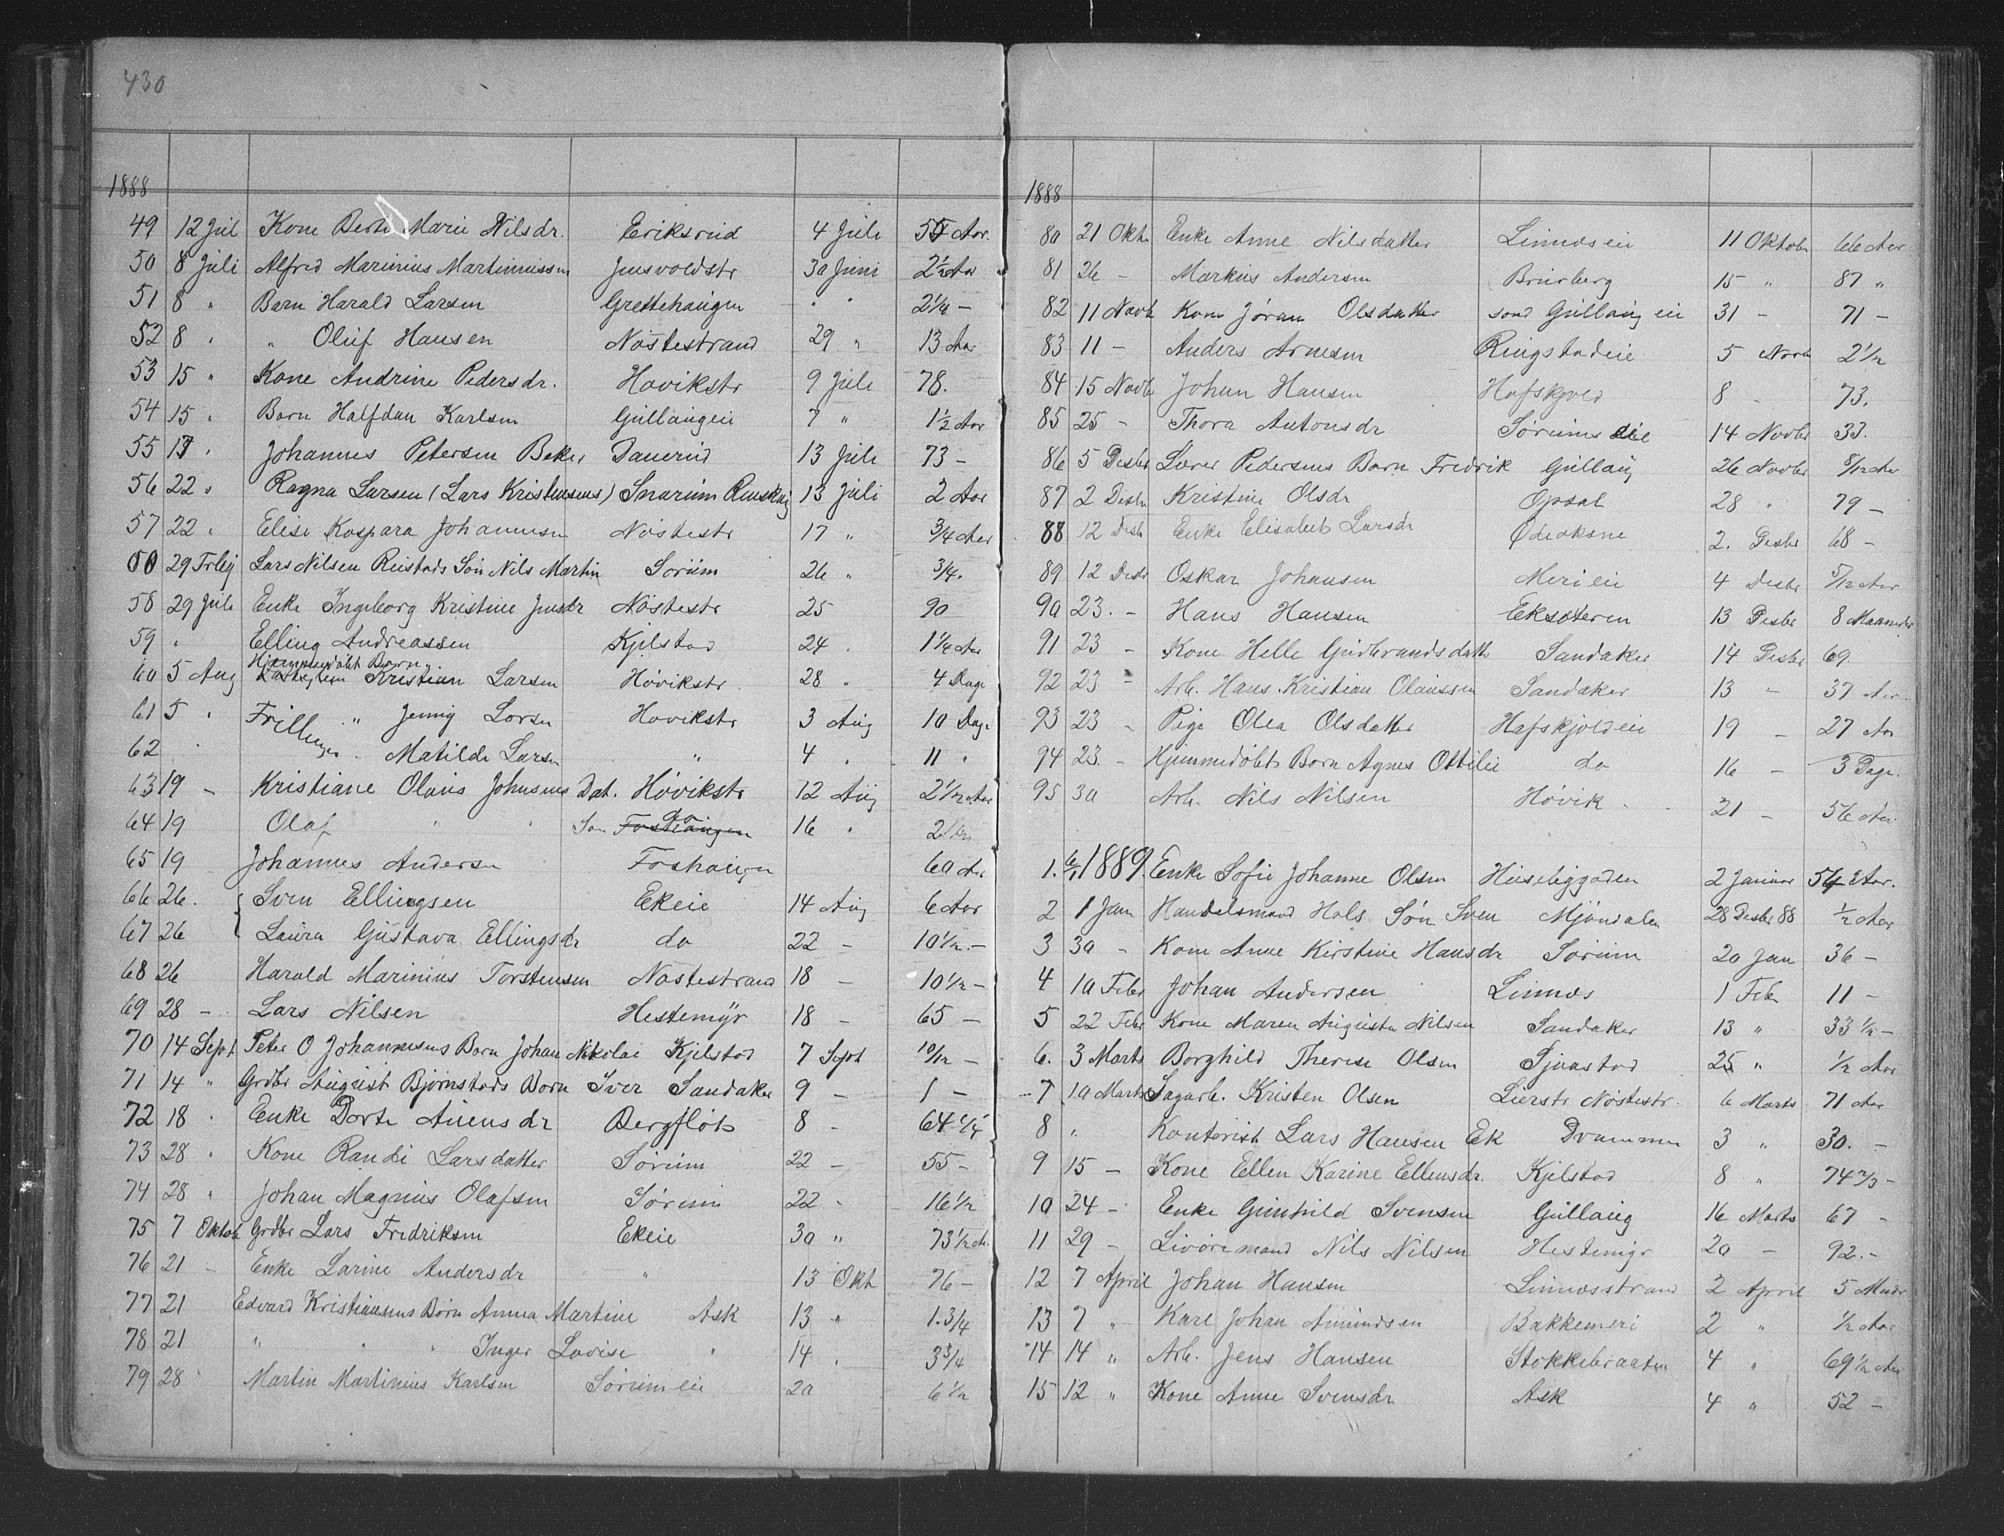 430
1888
49 12 Juli Kone Berte Marie Nilsdr. Eriksrud 4 Juli 55 Aar.
50 8 Juli Alfred Marinius Martinussen Jensvoldstr 30 Juni 2 1/2 Aar
51 8 " Barn Harald Larsen Grettehaugen " " 2 1/4 -
52 8 " " Oluf Hansen Nøstestrand 29 " 13 Aar
53 15 " Kone Andrine Pedersdr. Høvikstr 9 Juli 78.
54 15 " Barn Halfdan Karlsen Gullaugeie 7 " 1 1/2 Aar
55 17 " Johannes Petersen Beker Dauerud 13 Juli 73 -
56 22 " Ragna Larsen (Lars Kristensens) Snarum 13 Juli 2 Aar
57 22 " Elise Kaspara Johannesen Nøstestr 17 " 3/4 Aar
00 29 Lars Nilsen Rustads Søn Nils Martin Sørum 26 " 3/4.
58 29 Juli Enke Ingeborg Kristine Jensdr Nøstestr 25 90
59 " Elling Andreassen Kjelstad 24 " 1 1/4 Aar
60 5 Aug Hjemmedøbt Barn Kristian Larsen Høvikstr 28 " 4 Dage
61 5 " Trillinger " Jenny Larsen Høvikstr 3 Aug 10 Dage
62 " Matilde Larsen " 4 " 11 "
63 19 - Kristiane Olaus Johnsens Dat. Høvikstr 12 Aug 2 1/12 Aar
64 19 Olaf " " Søn do 16 " 2
65 19 Johannes Andersen Foshaugen 60 Aar
66 26. Sven Ellingsen Ekeie 14 Aug 6 Aar
67 26 Laura Gustava Ellingsdr do 22 - 10 1/2. -
68 26 Harald Marinius Torstensen Nøstestrand 18 - 10 1/2 -
69 28 - Lars Nilsen Hestemyr 18 - 65 -
70 14 Sept Peter O Johannesens Barn Johan Nikolai Kjelstad 7 Sept 10/12 -
71 14 " Grdbr August Bjørnstads Barn Iver Sandaker 9 - 1 -
72 18 " Enke Dorte Auensdr Bergfløt 8 - 64 1/4
73 28 " Kone Randi Larsdatter Sørum 22 - 55 -
74 28 " Johan Magnus Olafsen Sørum 22 - 16 1/2
75 7 Oktob Grdbr Lars Fredriksen Ekeie 30 " 73 1/2 A.
76 21 - Enke Larine Andersdr " 13 Okt 76 -
77 21 Edvard Kristiansens Børn Anna Martine Ask 13 " 1.3/4
78 21 " " " Inger Lovise " 14 " 3 3/4
79 28 Martin Martinius Karlsen Sørumeie 20 6 1/2
1888
80 21 Oktr Enke Anne Nilsdatter Linneseie 11 Oktobr 66 Aar
81 26 - Markus Andersen Bruberg 15 " 87 "
82 11 Novb Kone Jøran Olsdatter Gullaug eie 31 - 71 -
83 11 - Anders Arnesen Ringstadeie 5 Novb 2 1/2
84 15 Novb Johan Hansen Hafskjold 8 - 73.
85 25 - Thora Antonsdr Sørumseie 14 Novbr 33.
86 5 Desbr Lærer Pedersens Barn Fredrik Gullaug 26 Novbr 8/12 Aar
87 2 Desbr Kristine Olsdr Opsal 28 " 79 -
88 12 Desb Enke Elisabet Larsdr Ødeaksne 2. Desbr 68 -
89 12 Desbr Oskar Johansen Merieie 4 Desbr 5/12 Aar
90 23. - Hans Hansen Eksæteren 13 Desbr 8 Maaneder
91 23 - Kone Helle Gudbrandsdatter Sandaker 14 Desbr 69.
92 23 - Arb. Hans Kristian Olaussen Sandaker 13 - 37 Aar.
93 23 - Pige Olea Olsdatter Hafskjoldeie 19 - 27 Aar
94 23. - Hjemmedøbt Barn Agnes Ottilie do 16 - 3 Dage.
95 30 Arb. Nils Nilsen Høvik 21 - 56 Aar
1. 6/1 1889. Enke Sofie Johanne Olsen Husebygaden 2 Januar 54 Aar.
2 1 Jan Handelsmand Hals Søn Sven Mjøndalen 28 Desbr 88 1/2 Aar
3 30 - Kone Anne Kirstine Hansdr Sørum 20 Jan 36 -
4 10 Febr Johan Andersen Linnes 1 Febr 11 -
5 22 Febr Kone Maren Augusta Nilsen Sandaker 13 " 33 1/2 -
6. 3 Marts Borghild Therese Olsen Gjerstad 25 " 1/2 Aar
7 10 Marts Sagarb. Kristen Olsen Lierstr Nøstestr. 6 Marts 71 Aar
8 " Kontorist Lars Hansen Ek Drammen 3 " 30. -
9 15 - Kone Ellen Karine Ellensdr. Kjelstad 8 " 74 2/3 -
10 24 - Enke Gunhild Svensen Gullaug 16 Marts 67 -
11 29 - Livøremand Nils Nilsen Hestemyr 20 - 92. -
12 7 April Johan Hansen Linnesstrand 2 April 5 Mndr
13 7 " Karl Johan Amundsen Bakkemeri 2 " 1/2 Aar
14 14 " Arb. Jens Hansen Stokkebraaten 4 " 69 1/2 Aar
15 12 " Kone Anne Svensdr Ask 4 " 52 -